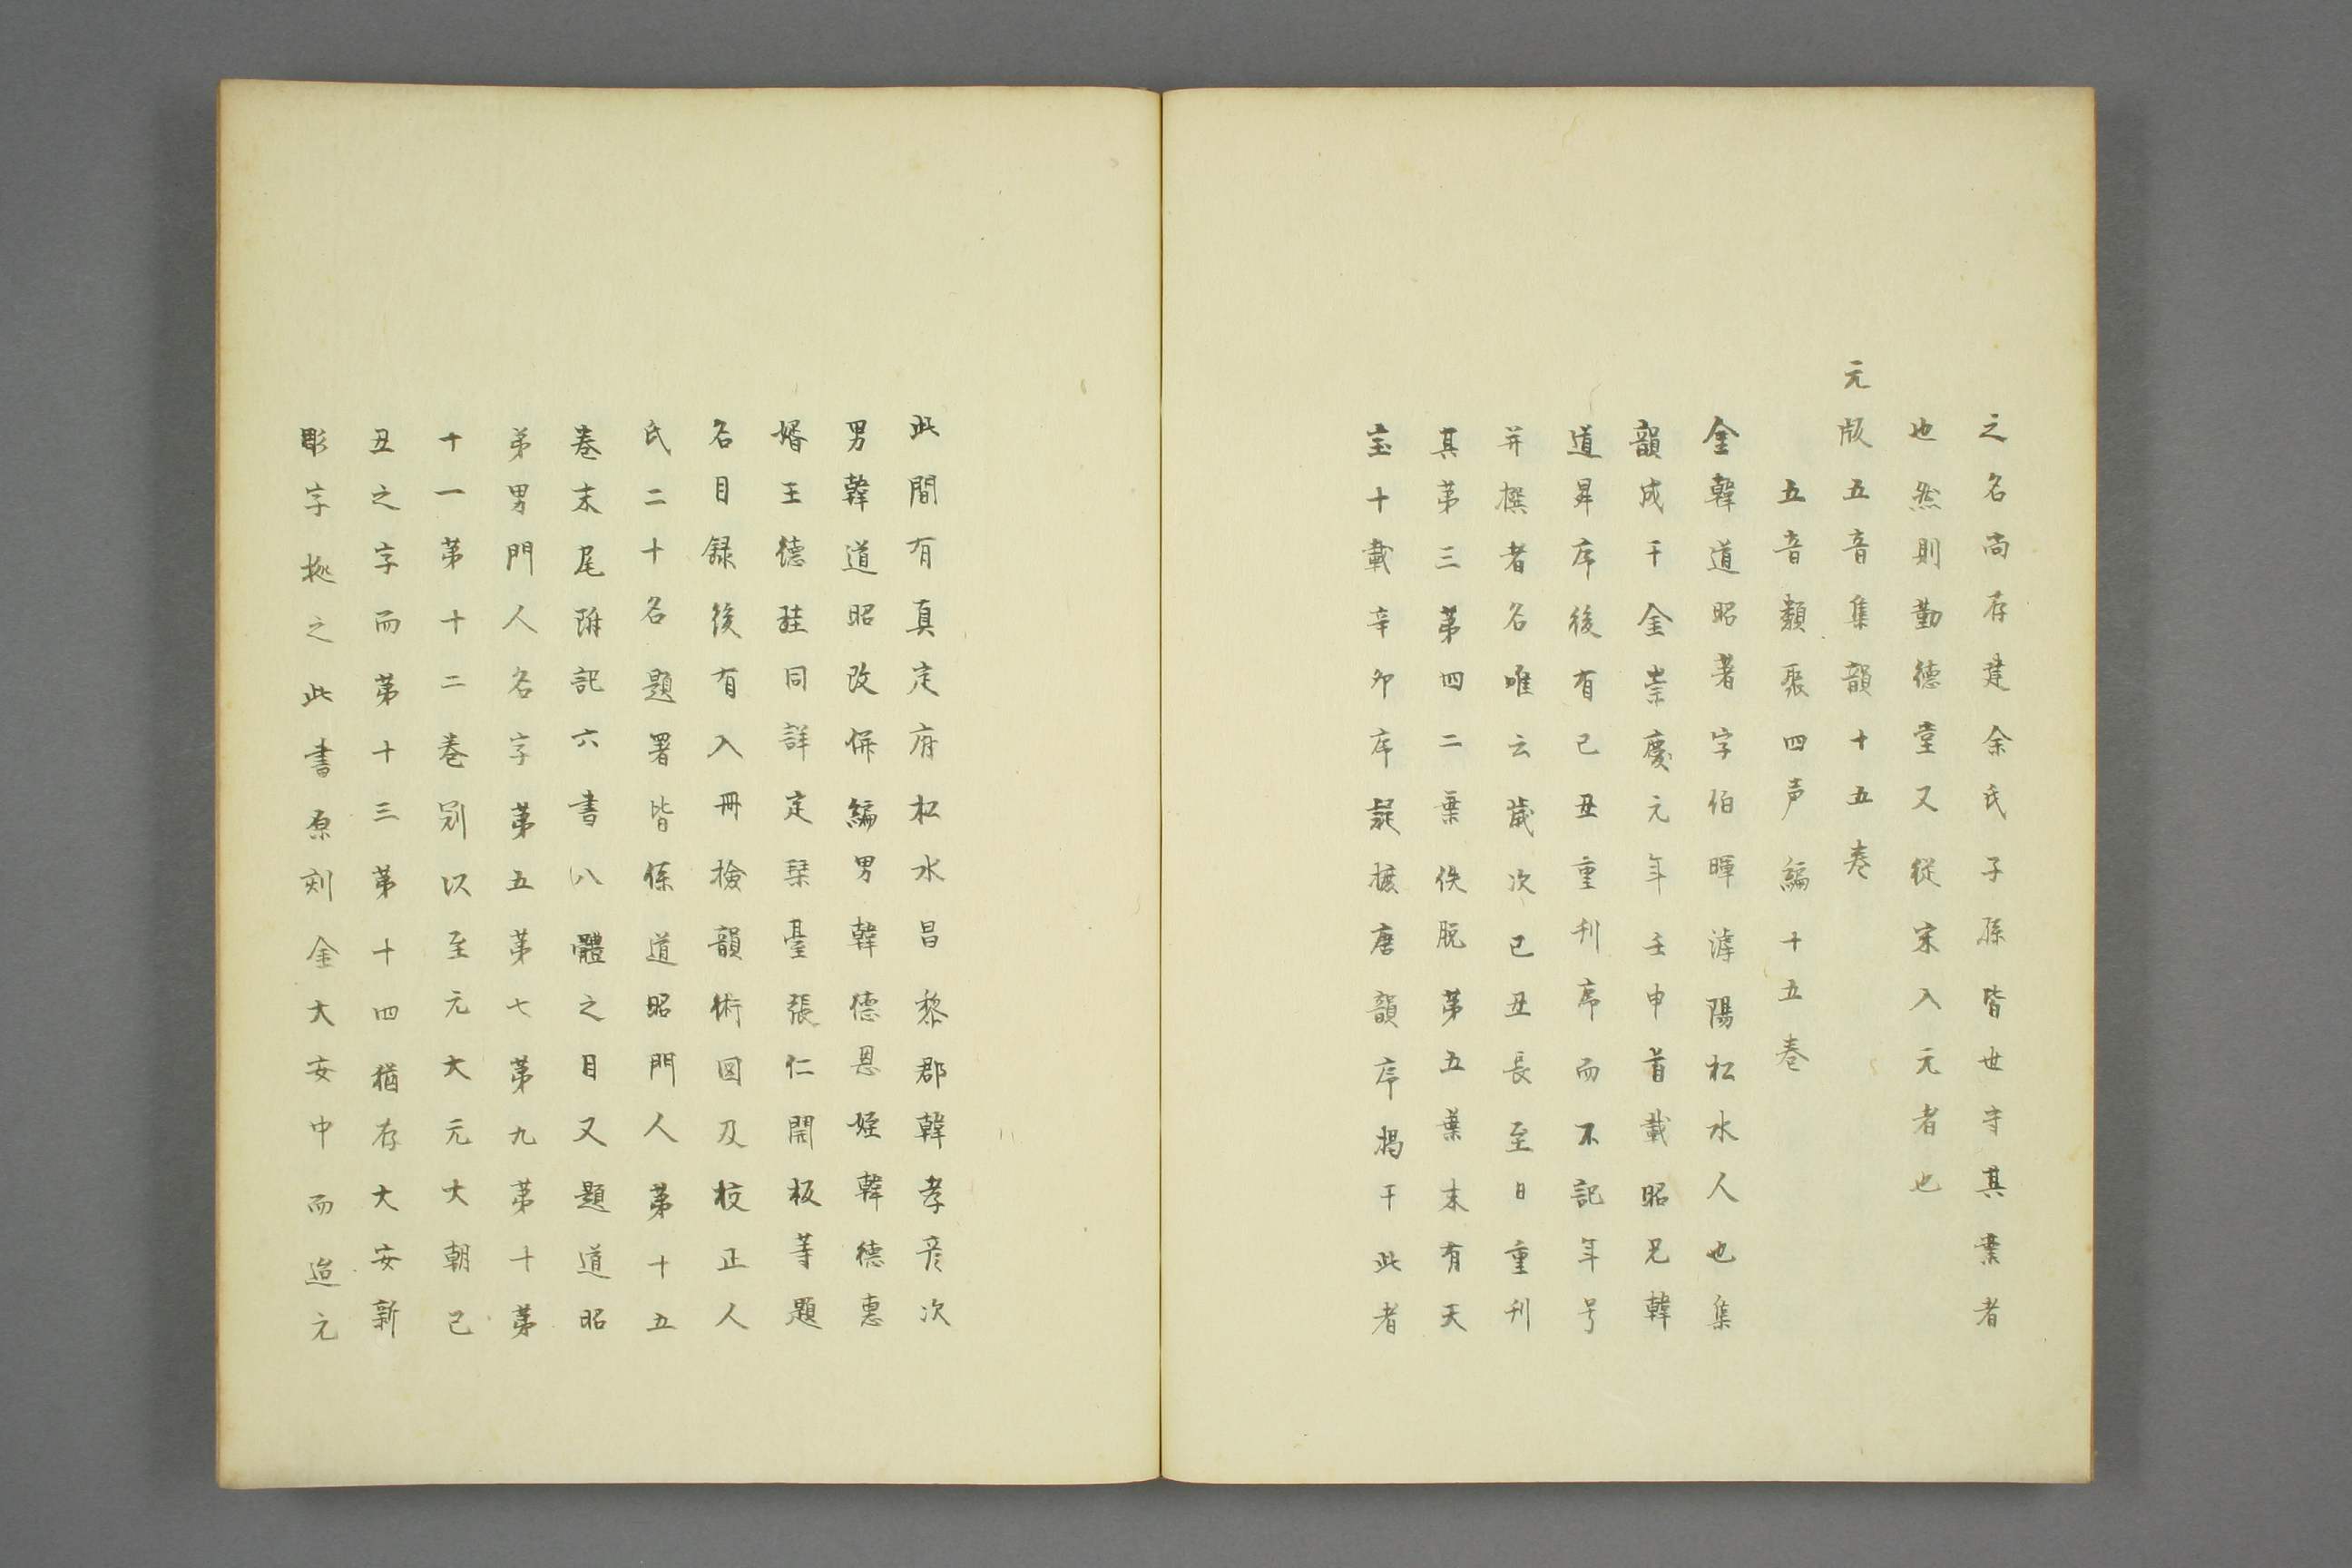 之名尚存建余氏子孫皆世守其業者
也然則勤德堂又從宋入元者也
元版五音集韻十五巻
五音類聚四声編十五巻
金韓道昭著字伯暉滹陽松水人也集
韻成于金崇慶元年壬申首載昭兄韓
道昇序後有己丑重刊序而不記年号
并撰者名唯云歳次己丑長至日重刊
其第三第四二葉佚脱第五葉末有天
宝十載辛卯序疑據唐韻序掲于此者
此間有真定府松水昌黎郡韓孝彦次
男韓道昭改併編男韓德恩姪韓德惠
婿王德珪同詳定琹臺張仁開板等題
名目録後有入冊檢韻術図及校正人
氏二十名題署皆係道昭門人第十五
巻末尾附記六書八體之目又題道昭
弟男門人名字第五第七第九第十第
十一第十二巻別以至元大元大朝己
丑之字而第十三第十四猶存大安新
彫字拠之此書原刻金大安中而迨元